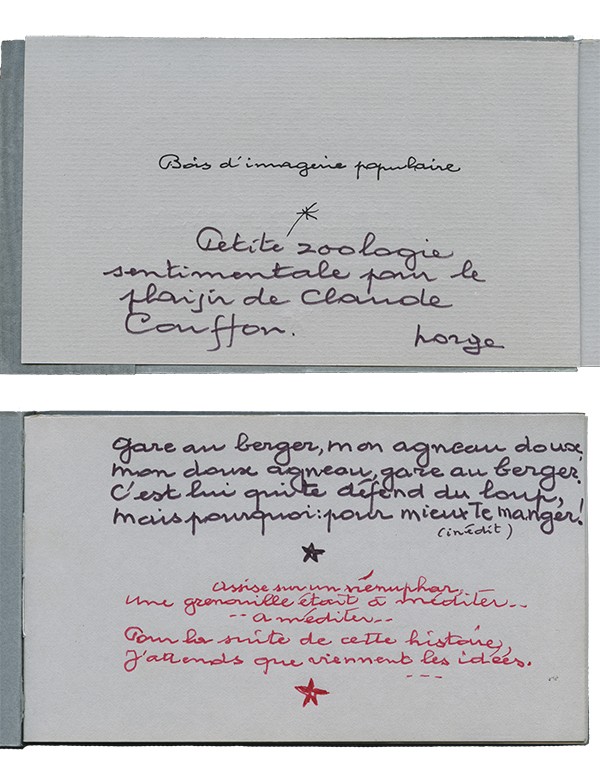 Bois d'imagerie populaire
Petite zoologie
sentimentale pour le
plaisir de Claude
Couffon.
Lorge
Gare au berger, mon agneau doux,
mon doux agneau, gare au berger.
C'est lui qui te défend du loup,
mais pourquoi: pour mieux Te manger!
(inédit)
Assise sur un nénuphar,
Une grenouille était à méditer..
-- à méditer..
Pour la suite de cette histoire,
J'attends que viennent les idées.